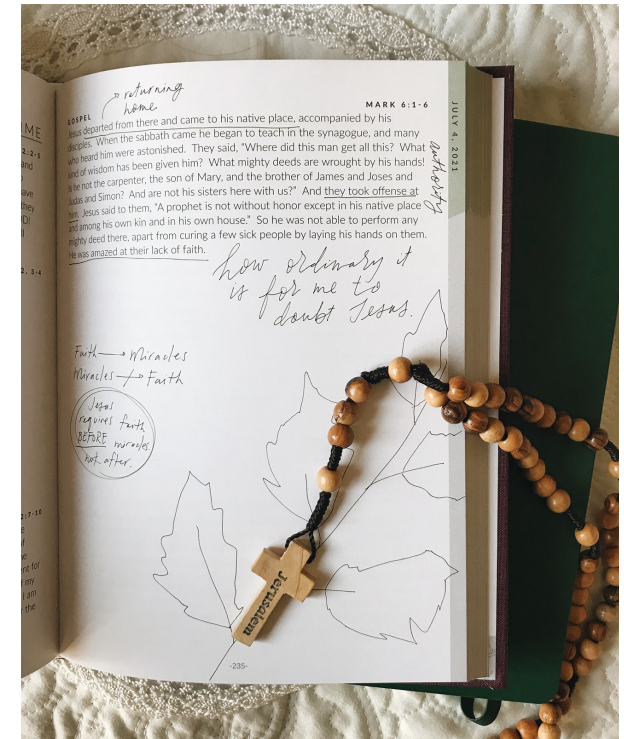 returning
home
GOSPEL
MARK 6:1-6
JULY 4, 2021
Jesus departed from there and came to his native place, accompanied by his
disciples. When the sabbath came he began to teach in the synagogue, and many
who heard him were astonished. They said, “Where did this man get all this? What
kind of wisdom has been given him? What mighty deeds are wrought by his hands!
Is he not the carpenter, the son of Mary, and the brother of James and Joses and
Judas and Simon? And are not his sisters here with us?” And they took offense at
him. Jesus said to them, “A prophet is not without honor except in his native place
and among his own kin and in his own house.” So he was not able to perform any
mighty deed there, apart from curing a few sick people by laying his hands on them.
He was amazed at their lack of faith.
authority
how ordinary it
is for me to
doubt Jesus.
Faith → Miracles
Miracles ↛ Faith
Jesus
requires faith
BEFORE miracles,
not after.
Jerusalem
-235-
ME
2:2-5
and
ave
they
D!
2, 3-4
2:7-10
of
ent for
f my
I am
the